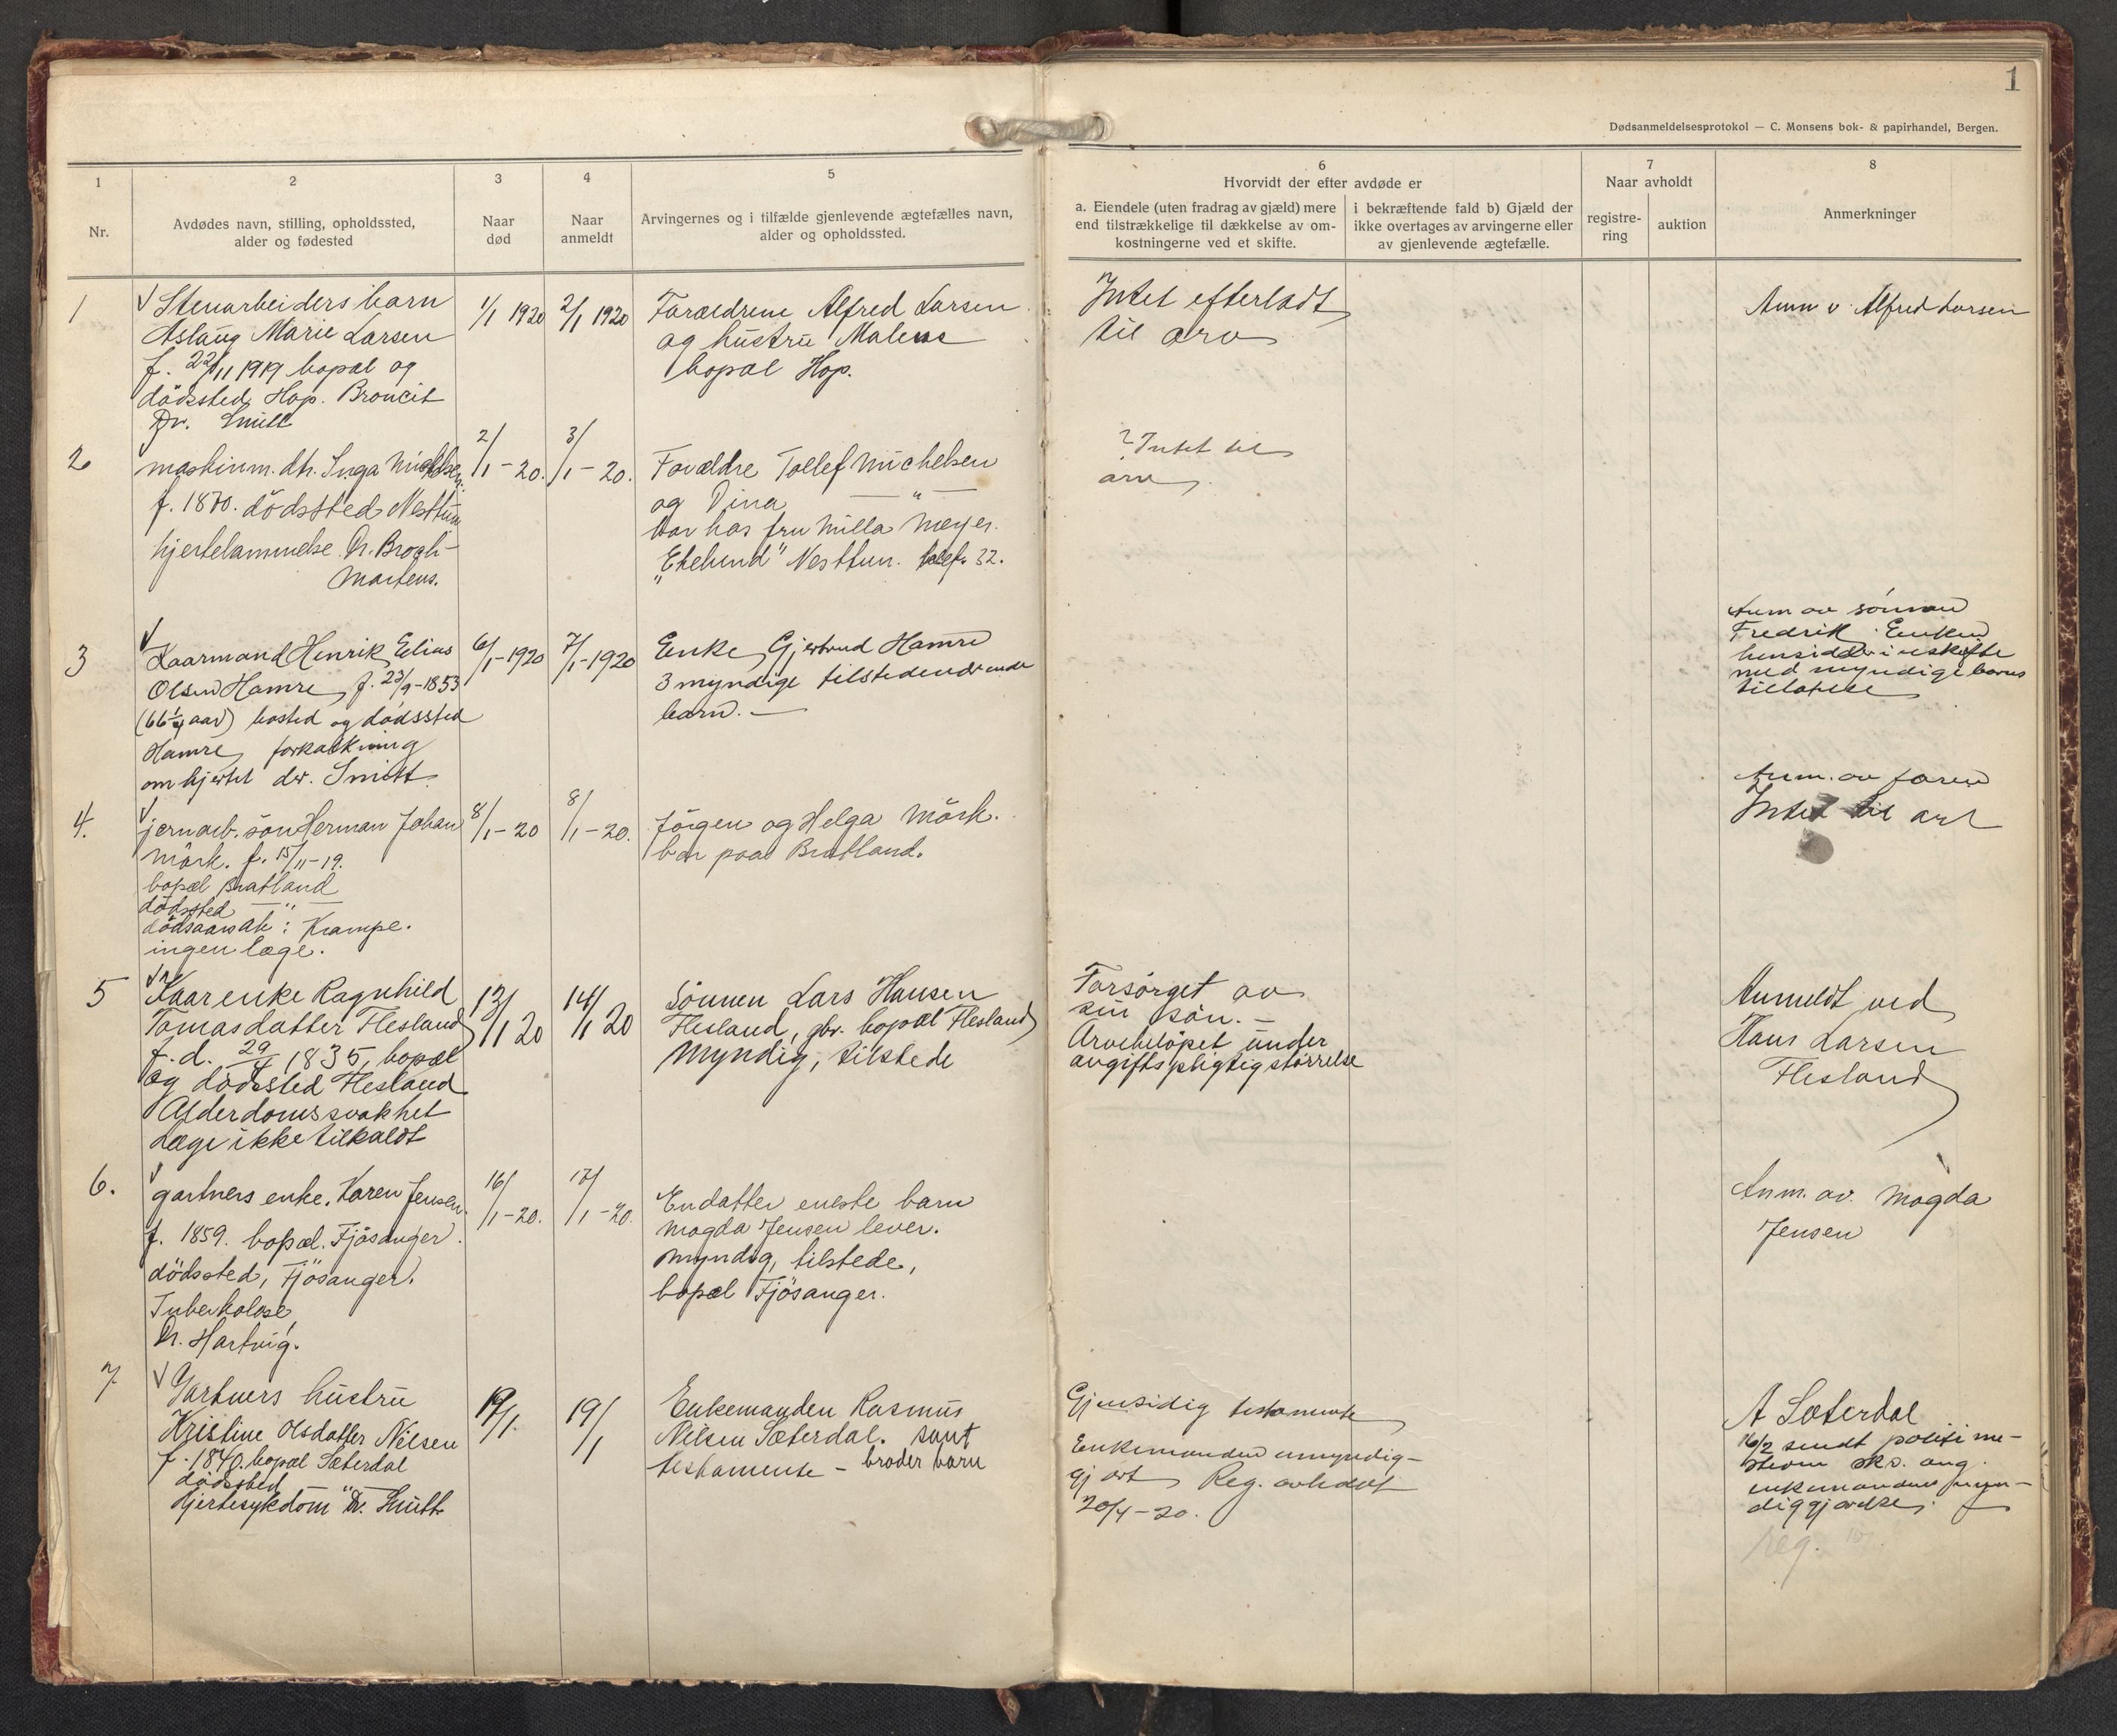 1
Dødsanmeldelsesprotokol — C. Monsens bok- & papirhandel, Bergen.
1
Nr.
2
Avdødes navn, stilling, opholdssted,
alder og fødested
3
Naar
død
4
Naar
anmeldt
5
Arvingernes og i tilfælde gjenlevende ægtefælles navn,
alder og opholdssted.
6
Hvorvidt der efter avdøde er
a. Eiendele (uten fradrag av gjæld) mere
end tilstrækkelige til dækkelse av om-
kostningerne ved et skifte.
i bekræftende fald b) Gjæld der
ikke overtages av arvingerne eller
av gjenlevende ægtefælle.
7
Naar avholdt
registre-
ring
auktion
8
Anmerkninger
1
Stenarbeiders barn
Aslaug Marie Larsen
f. 22/11 1919 bopæl og
dödssted Hop. Broncit
Dr. Smitt
1/1 1920
2/1 1920
Forældrene Alfred Larsen
og hustru Malene
bopæl Hop.
Intet efterladt
til arv
Anm v. Alfred Larsen
2
maskinm. dtr. Inga Michelsen
f. 1870. dödssted Nesttun
hjertelammelse. Dr. Broch-
Martens.
2/1 - 20.
3/1 - 20.
Forældre Tollef Michelsen
og Dina — " —
bor hos fru Milla Meyer.
"Ekelund" Nesttun. telef. 32.
? Intet til
arv.
3
Kaarmand Henrik Elias
Olsen Hamre, f. 23/9-1853
(66 1/4 aar) bosted og dødssted
Hamre, forkalkning
om hjertet dr. Smitt.
6/1-1920
7/1-1920
Enke, Gjertrud Hamre
3 myndige tilstedeværende
barn. —
Anm av sönnen
Fredrik. Enken
hensidder i uskifte
med myndige barns
tillatelse
4.
jernarb. sön Herman Johan
Mörk. f. 15/11-19.
bopæl Bratland
dödssted — " —
dödsaarsak: Krampe.
ingen læge.
8/1 - 20
8/1 - 20.
Jörgen og Helga Mörk.
bor paa Bratland.
Anm. av faren
Intet til arv
5
Kaarenke Ragnhild
Tomasdatter Flesland
f. d. 29/ 1835, bopæl
og dödssted Flesland
Alderdomssvakhet
Læge ikke tilkaldt
13/1 20
14/1 20
Sönnen Lars Hansen
Flesland, gbr. bopæl Flesland
Myndig, tilstede
Forsörget av
sin sön. —
Arvebelöpet under
avgiftspligtig störrelse
Anmeldt ved
Hans Larsen
Flesland
6.
gartners enke. Karen Jensen.
f. 1859. bopæl. Fjösanger.
dödssted, Fjösanger.
Tuberkolose,
Dr. Hartvig.
16/1-20.
17/1-20.
En datter eneste barn
Magda Jensen lever.
Myndig, tilstede,
bopæl Fjösanger.
Anm. av. Magda
Jensen
7
Gartners hustru
Kristine Olsdatter Nilsen
f. 1840. bopæl Sæterdal
dödssted — " —
Hjertesykdom Dr. Smitt.
/1.
19/1
Enkemanden Rasmus
Nilsen Sæterdal. samt
testamente - broder barn
Gjensidig testamente
Enkemanden umyndig-
gjort Reg. avholdt
20/4-20.
A Sæterdal
16/2 sendt politime-
steren skr. ang.
enkemandens umyn-
diggjørelse.
reg.